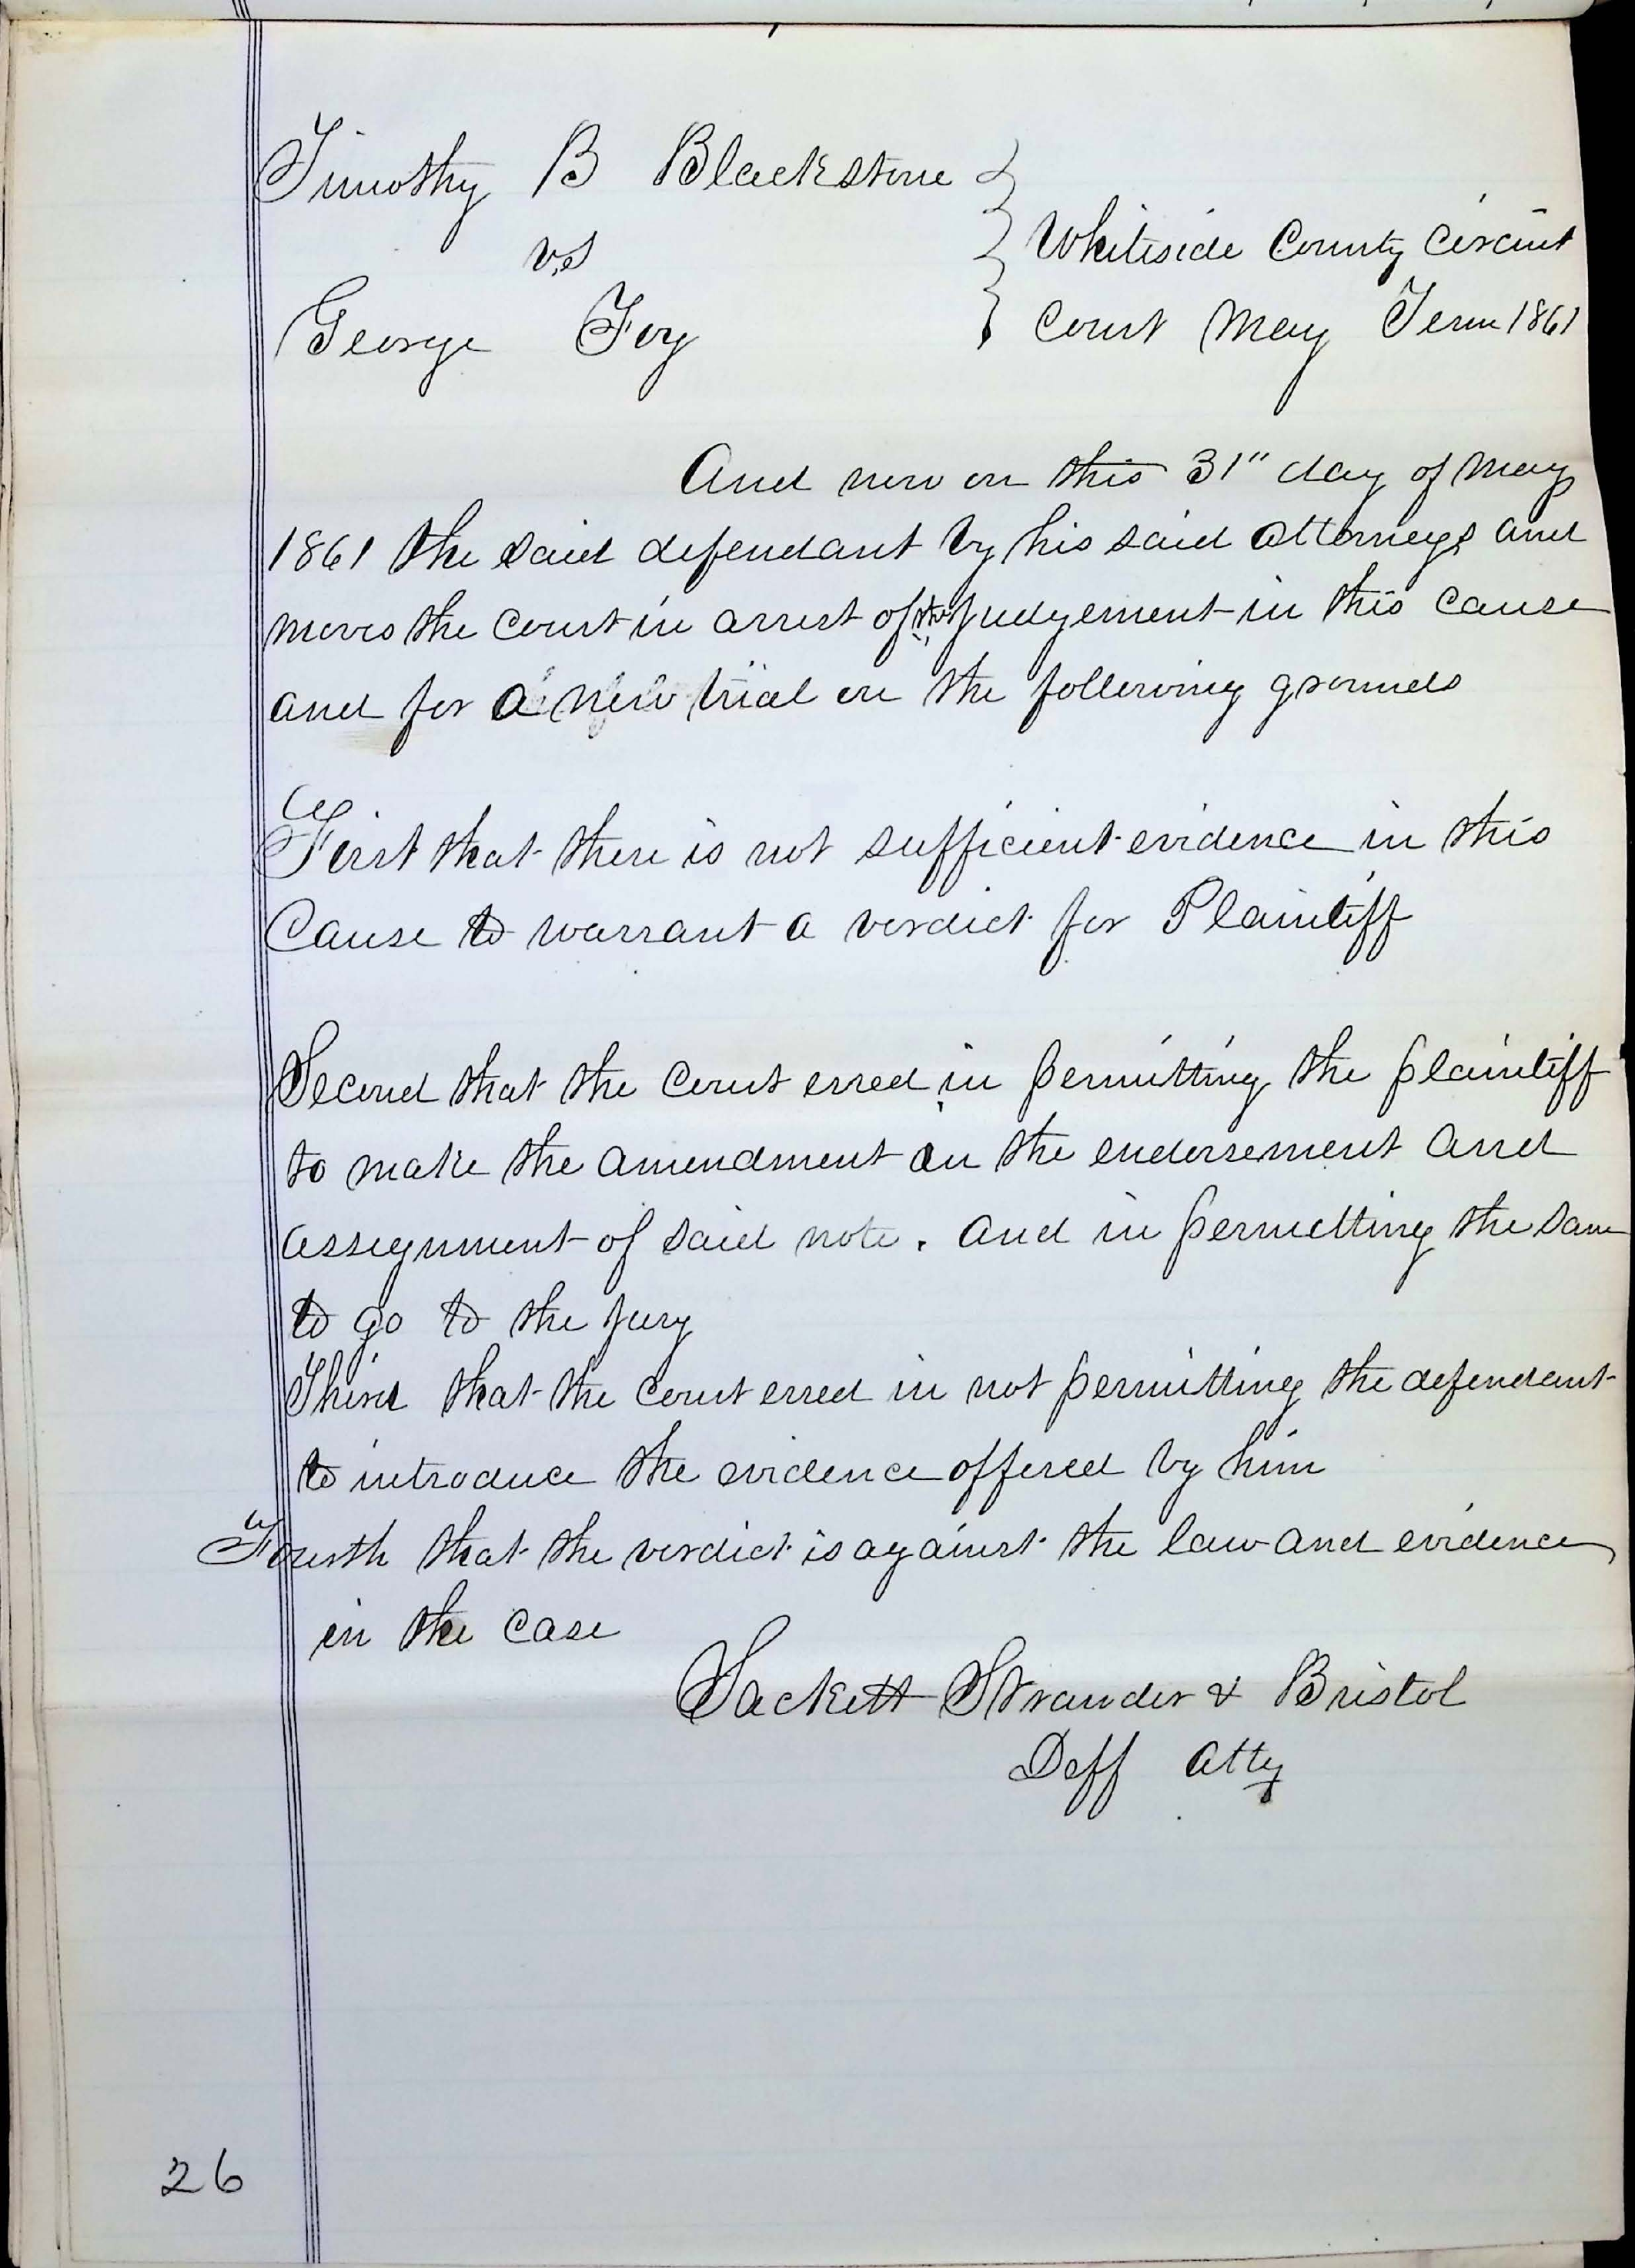 Timothy B Blackstone
vs
George Foy
Whiteside County Circuit
Court May Term 1861
And now on this 31" day of May
1861 the said defendant by his said attorneys and
moves the court in arrest of the judgement in this cause
and for a new trial on the following grounds
First that there is not sufficient evidence in this
Cause to warrant a verdict for Plaintiff
Second that the Court erred in permitting the plaintiff
to make the amendment in the endorsement and
assignment of said note. and in permitting the same
to go to the jury
Third that the court erred in not permitting the defendant
to introduce the evidence offered by him
Fourth that the verdict is against the law and evidence
in the case
Sackett Strawder & Bristol
Deff atty
26